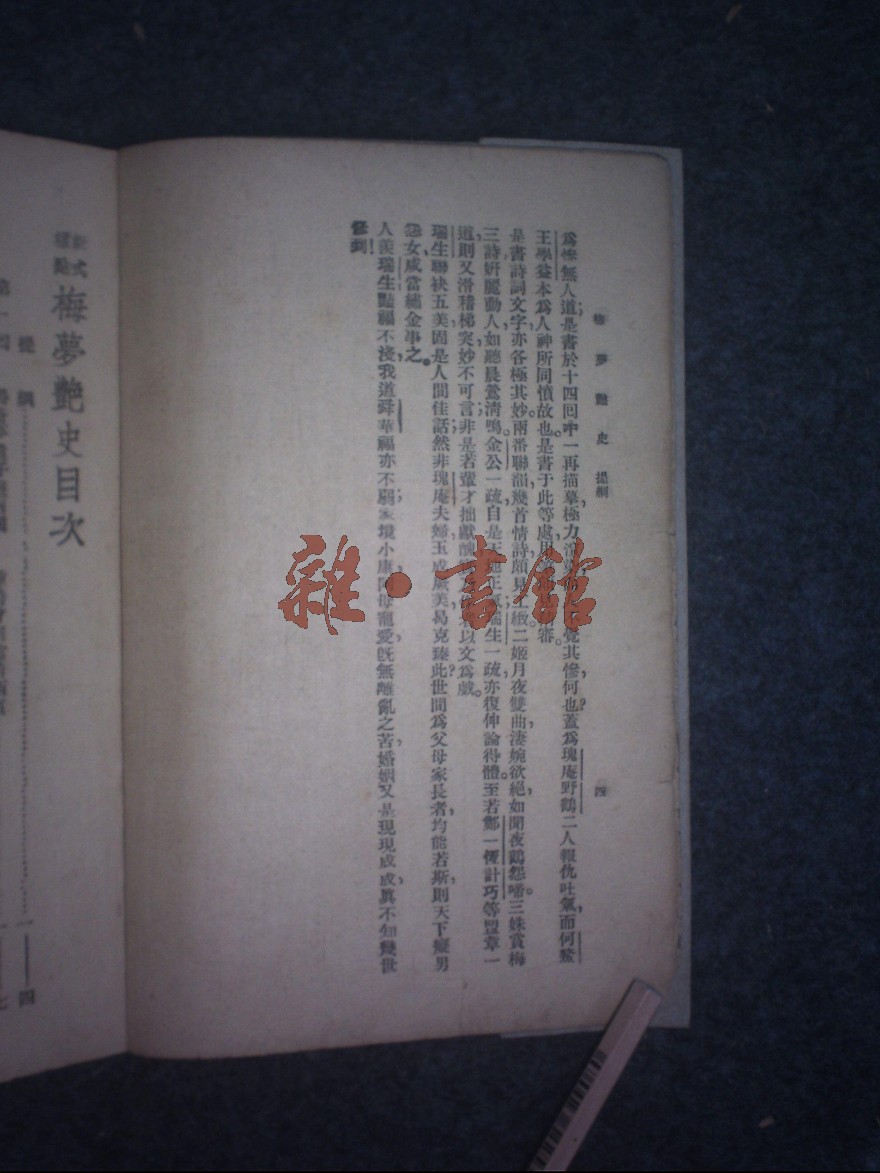 梅夢艷史 提綱 四
爲慘無人道；是書於十四回中一再描摹，極力渲 覺其慘，何也？蓋爲瑰庵野鶴二人報仇吐氣，而何鰲
王學益本爲人神所同憤故也。是書于此等處， 審。
是書詩詞文字，亦各極其妙。兩番聯韻，幾首情詩，頗見工緻。二姬月夜雙曲，淒婉欲絕，如聞夜鶴怨嘈。三姝賞梅
三詩，妍麗動人，如聽晨鶯清鳴。金公一疏，自是天地正 瑞生一疏，亦復伸論得體。至若鄭一恆計巧等盟章一
道，則又滑稽梯突，妙不可言。非是若輩才拙獻醜， 以文爲戲。
瑞生聯袂五美，固是人間佳話；然非瑰庵夫婦玉成厥美，曷克臻此？世間爲父母家長者，均能若斯，則天下癡男
怨女，咸當繡金事之。
人羨瑞生豔福不淺，我道舜華福亦不 境小康， 母寵愛，既無離亂之苦，婚姻又是現現成成，眞不知幾世
修到！
新式標點 梅夢艷史目次
提綱 一——四
第一回
雜·書館